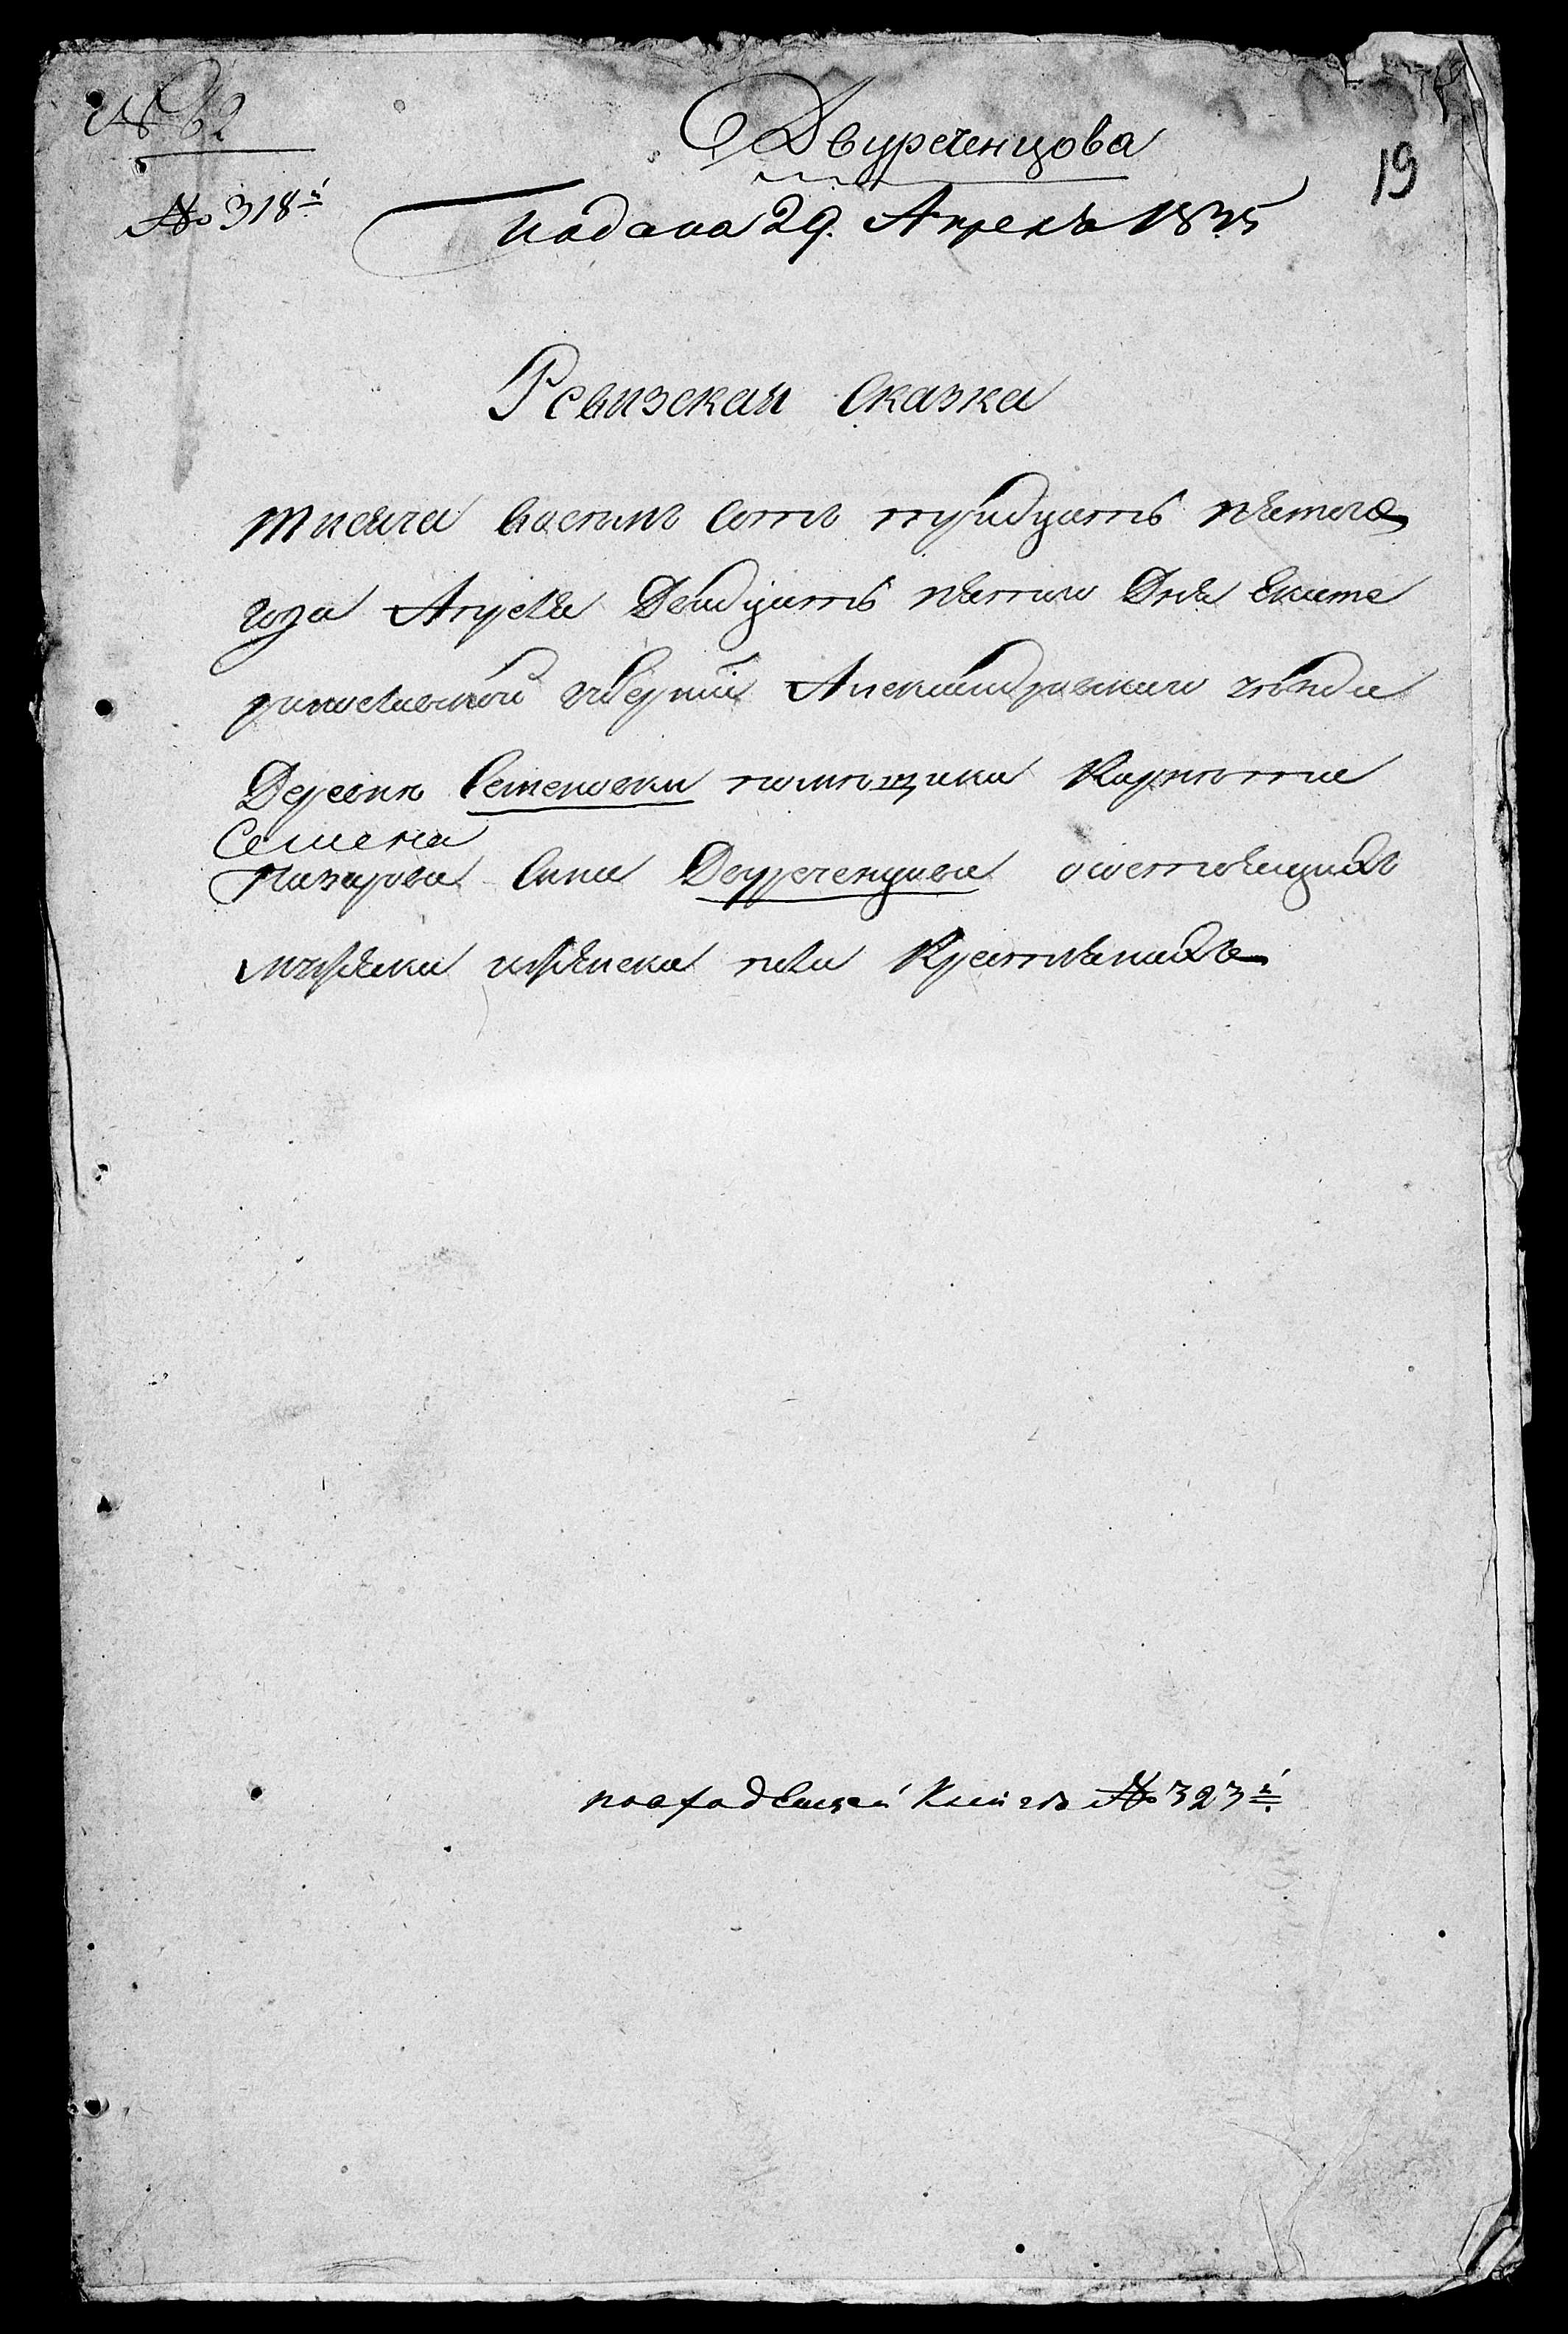 № 62
Двуреченцова
19
№ 318й
подана 29. Апреля 1835
Ревизская Сказка
тысяча восемь сотъ тридцать пятого
года Апреля Двадцать пятого Дня Екате
ринославской губернiи Александровскаго уезда
Деревни Семеновки помещика Корнета
Семена
Назарова Сына Двуреченцова о состоящихъ
мужеска и женска пола Крестьянахъ
по входящей Книге № 323й